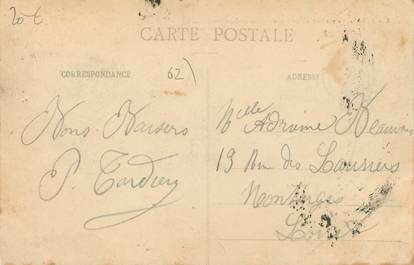 20 €
CARTE POSTALE
CORRESPONDANCE
62)
ADRESSE
Bons Baisers
P. Tardieu
Melle
13 Rue des Lauriers
Montargis
Loiret